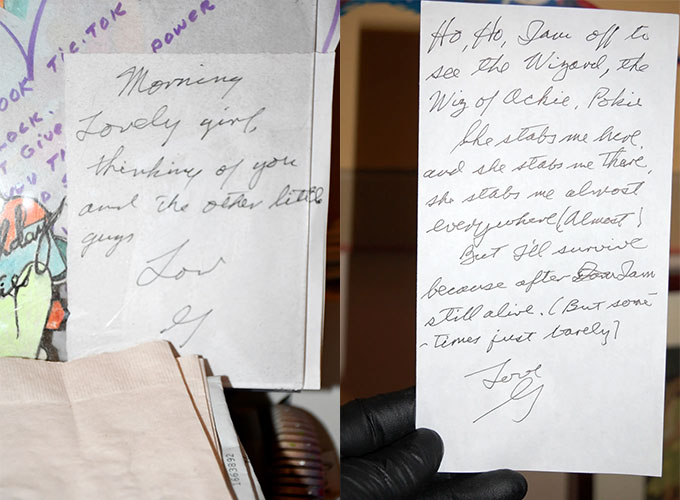 OOK TIC.TOK
POWER
LOCK.
T GIVE
Morning
Lovely girl,
thinking of you
and the other little
guys
Love
G
hday
1663892
Ho, Ho, I am off to
see the Wizard, the
Wiz of Ockie, Pokie
She stabs me here,
and she stabs me there,
she stabs me almost
everywhere (Almost)
But I'll survive
because after I am
still alive. (But some-
-times just barely)
Love
G